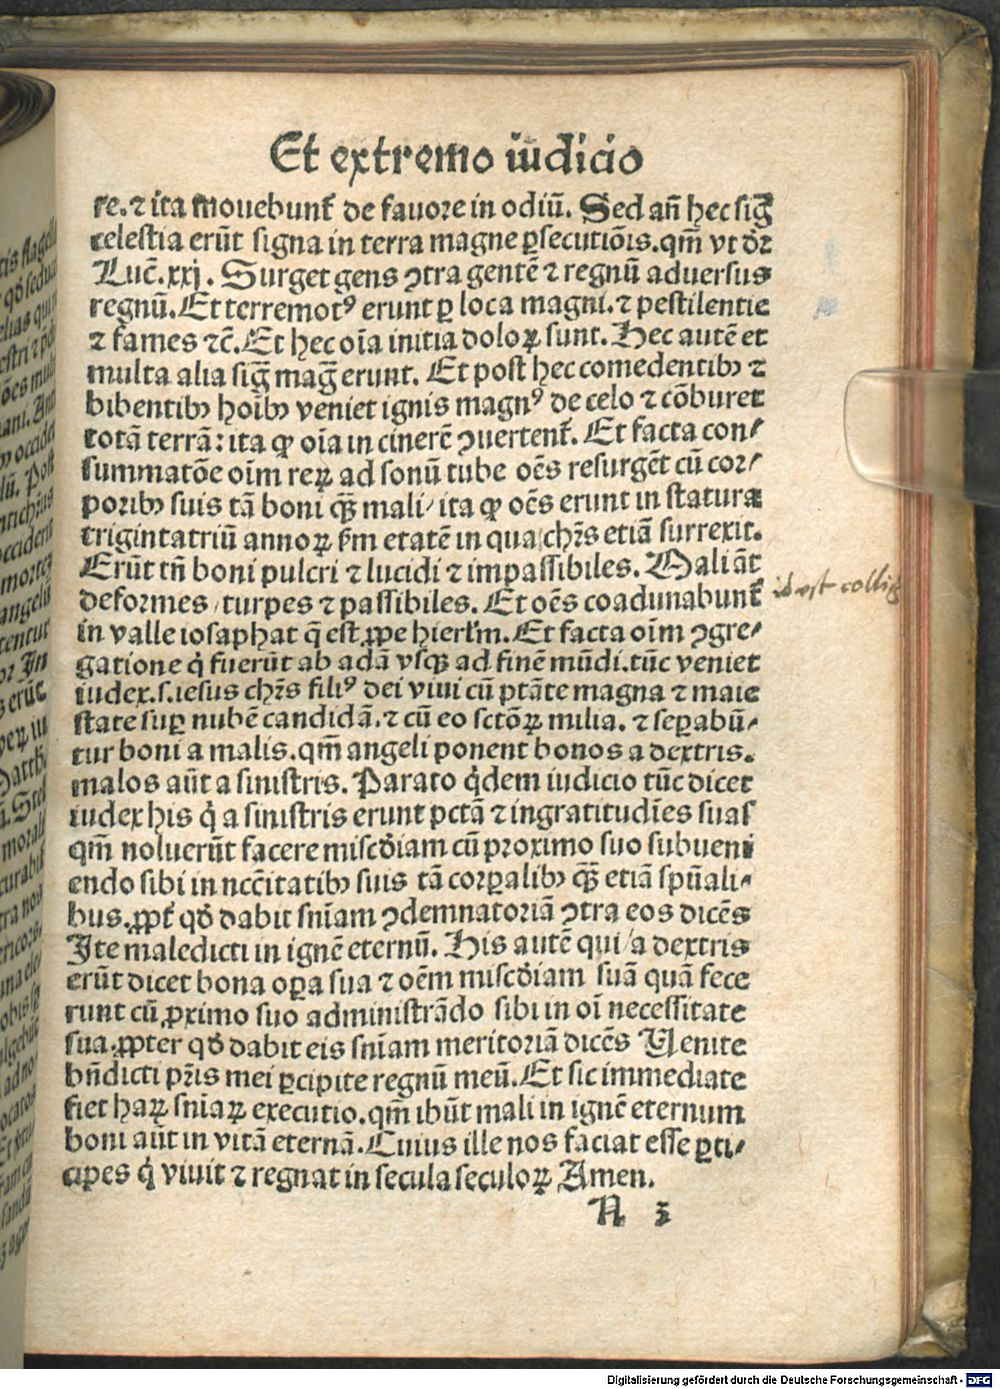 Et extremo iūdicio
re. ⁊ ita mouebunt̄ de fauore in odiū. Sed an̄ hec siḡ
celestia erūt signa in terra magne ꝑsecutiōis. qm̄ vt dr̄
Luc̄. xxj. Surget gens ꝯtra gentē ⁊ regnū aduersus
regnū. Et terremotꝰ erunt ꝑ loca magni. ⁊ pestilentie
⁊ fames ⁊c̄. Et hec oīa initia doloꝝ sunt. Hec autē et
multa alia siḡ maḡ erunt. Et post hec comedentibꝫ ⁊
bibentibꝫ hoībꝫ veniet ignis magnꝰ de celo ⁊ cōburet
totā terrā: ita ꝙ oīa in cinerē ꝯuertent̄. Et facta con/
summatōe oīm reꝝ ad sonū tube oēs resurgēt cū cor/
poribꝫ suis tā boni qͣꝫ mali/ ita ꝙ oēs erunt in statura
trigintatriū annoꝝ ẜm etatē in qua chr̄s etiā surrexit.
Erūt tn̄ boni pulcri ⁊ lucidi ⁊ impassibiles. Mali āt
deformes/ turpes ⁊ passibiles. Et oēs coadunabunt̄
in valle iosaphat q̄ est ꝓpe hierl̄m. Et facta oīm ꝯgre/
gatione q̇ fuerūt ab adā vsqꝫ ad finē mūdi. tūc veniet
iudex. s. iesus chr̄s filiꝰ dei viui cū ptāte magna ⁊ maie
state suꝑ nubē candidā. ⁊ cū eo sctōꝝ milia. ⁊ seꝑabū/
tur boni a malis. qm̄ angeli ponent bonos a dextris.
malos aūt a sinistris. Parato q̇dem iudicio tūc dicet
iudex his q̇ a sinistris erunt pctā ⁊ ingratitudīes suas
qm̄ noluerūt facere miscd̄iam cū proximo suo subueni
endo sibi in nccītatibꝫ suis tā corꝑalibꝫ qͣꝫ etiā spūali/
bus. ꝓpt̄ qd̄ dabit snīam ꝯdemnatoriā ꝯtra eos dicēs
Ite maledicti in ignē eternū. His autē qui a dextris
erūt dicet bona oꝑa sua ⁊ oēm miscd̄iam suā quā fece
runt cū ꝓximo suo administrādo sibi in oī necessitate
sua. ꝓpter qd̄ dabit eis snīam meritoriā dicēs Venite
bn̄dicti pr̄is mei ꝑcipite regnū meū. Et sic immediate
fiet haꝝ snīaꝝ executio. qm̄ ibūt mali in ignē eternum
boni aūt in vitā eternā. Cuius ille nos faciat esse ꝑti/
cipes q̇ viuit ⁊ regnat in secula seculoꝝ Amen.
A 3
id est
Digitalisierung gefördert durch die Deutsche Forschungsgemeinschaft - DFG